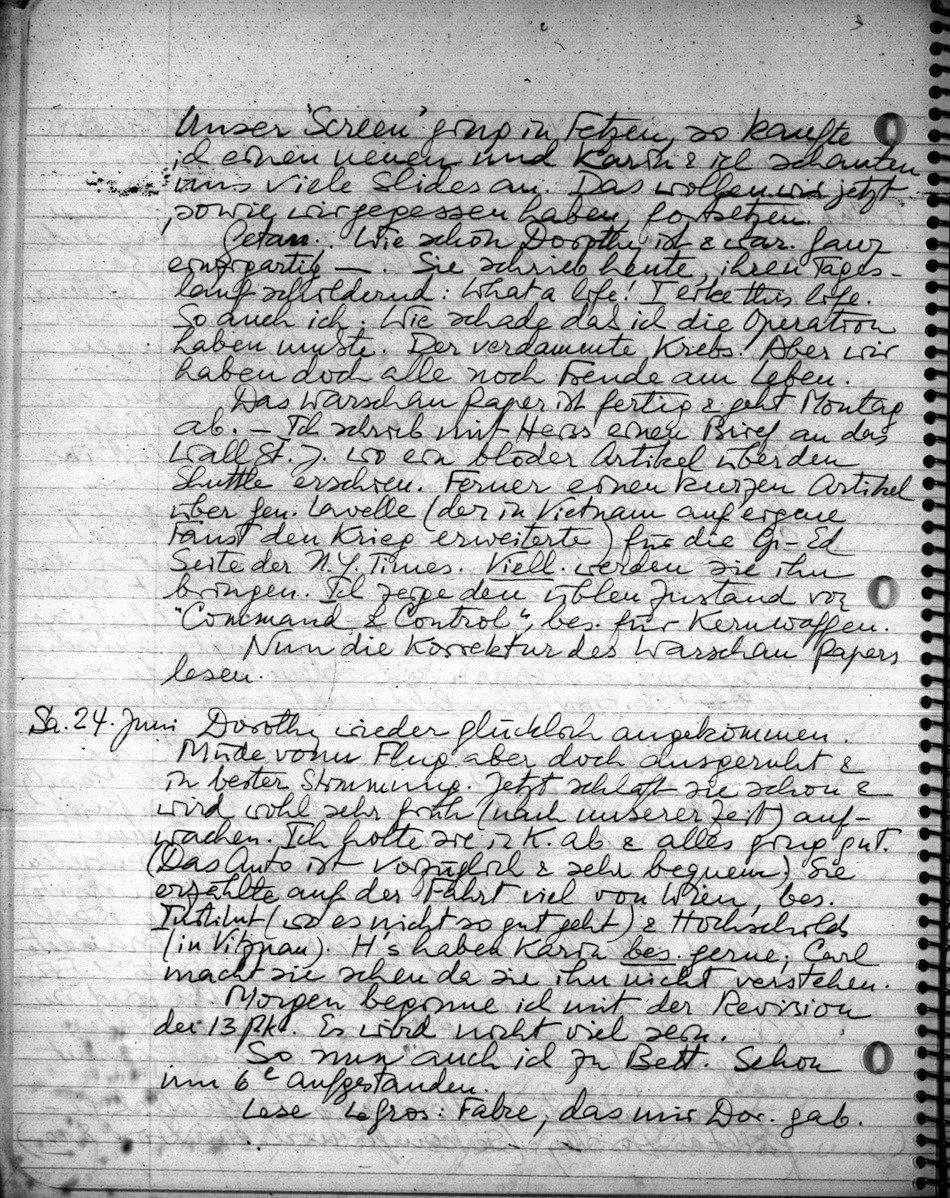 Unser 'Screen' ging in Fetzen, so kaufte
ich einen neuen und Karin & ich schauten
uns viele Slides an. Das wollen wir jetzt
, sowie wir gegessen haben, fortsetzen.
Getan. Wie schön Dorothy ist & war. Ganz
einzigartig —. Sie schrieb heute, ihren Tages-
lauf schildernd: What a life! I like this life.
So auch ich. Wie schade daß ich die Operation
haben mußte. Der verdammte Krebs. Aber wir
haben doch alle noch Freude am Leben.
Das Warschau Paper ist fertig & geht Montag
ab. – Ich schrieb mit Herss einen Brief an das
Wall St. J. wo ein blöder Artikel über den
Shuttle erschien. Ferner einen kurzen Artikel
über Gen. Lavelle (der in Vietnam auf eigene
Faust den Krieg erweiterte) für die Op-Ed
Seite der N.Y. Times. Viell. werden sie ihn
bringen. Ich zeige den üblen Zustand von
"Command & Control", bes. für Kernwaffen.
Nun die Korrektur des Warschau Papers
lesen.
Sa. 24. Juni Dorothy wieder glücklich angekommen.
Müde vom Flug aber doch ausgeruht &
in bester Stimmung. Jetzt schläft sie schon &
wird wohl sehr früh (nach unserer Zeit) auf-
wachen. Ich holte sie in K. ab & alles ging gut.
(Das Auto ist vorzüglich & sehr bequem.) Sie
erzählte auf der Fahrt viel von Wien, bes.
Institut (wo es nicht so gut geht) & Hochschilds
(in Vitznau). H's haben Karin bes. gerne; Carl
macht sie scheu da sie ihn nicht verstehen.
Morgen beginne ich mit der Revision
der 13 pk. Es wird nicht viel sein.
So nun auch ich zu Bett. Schon
um 6 aufgestanden.
Lese Legros: Fabre, das mir Dor. gab.